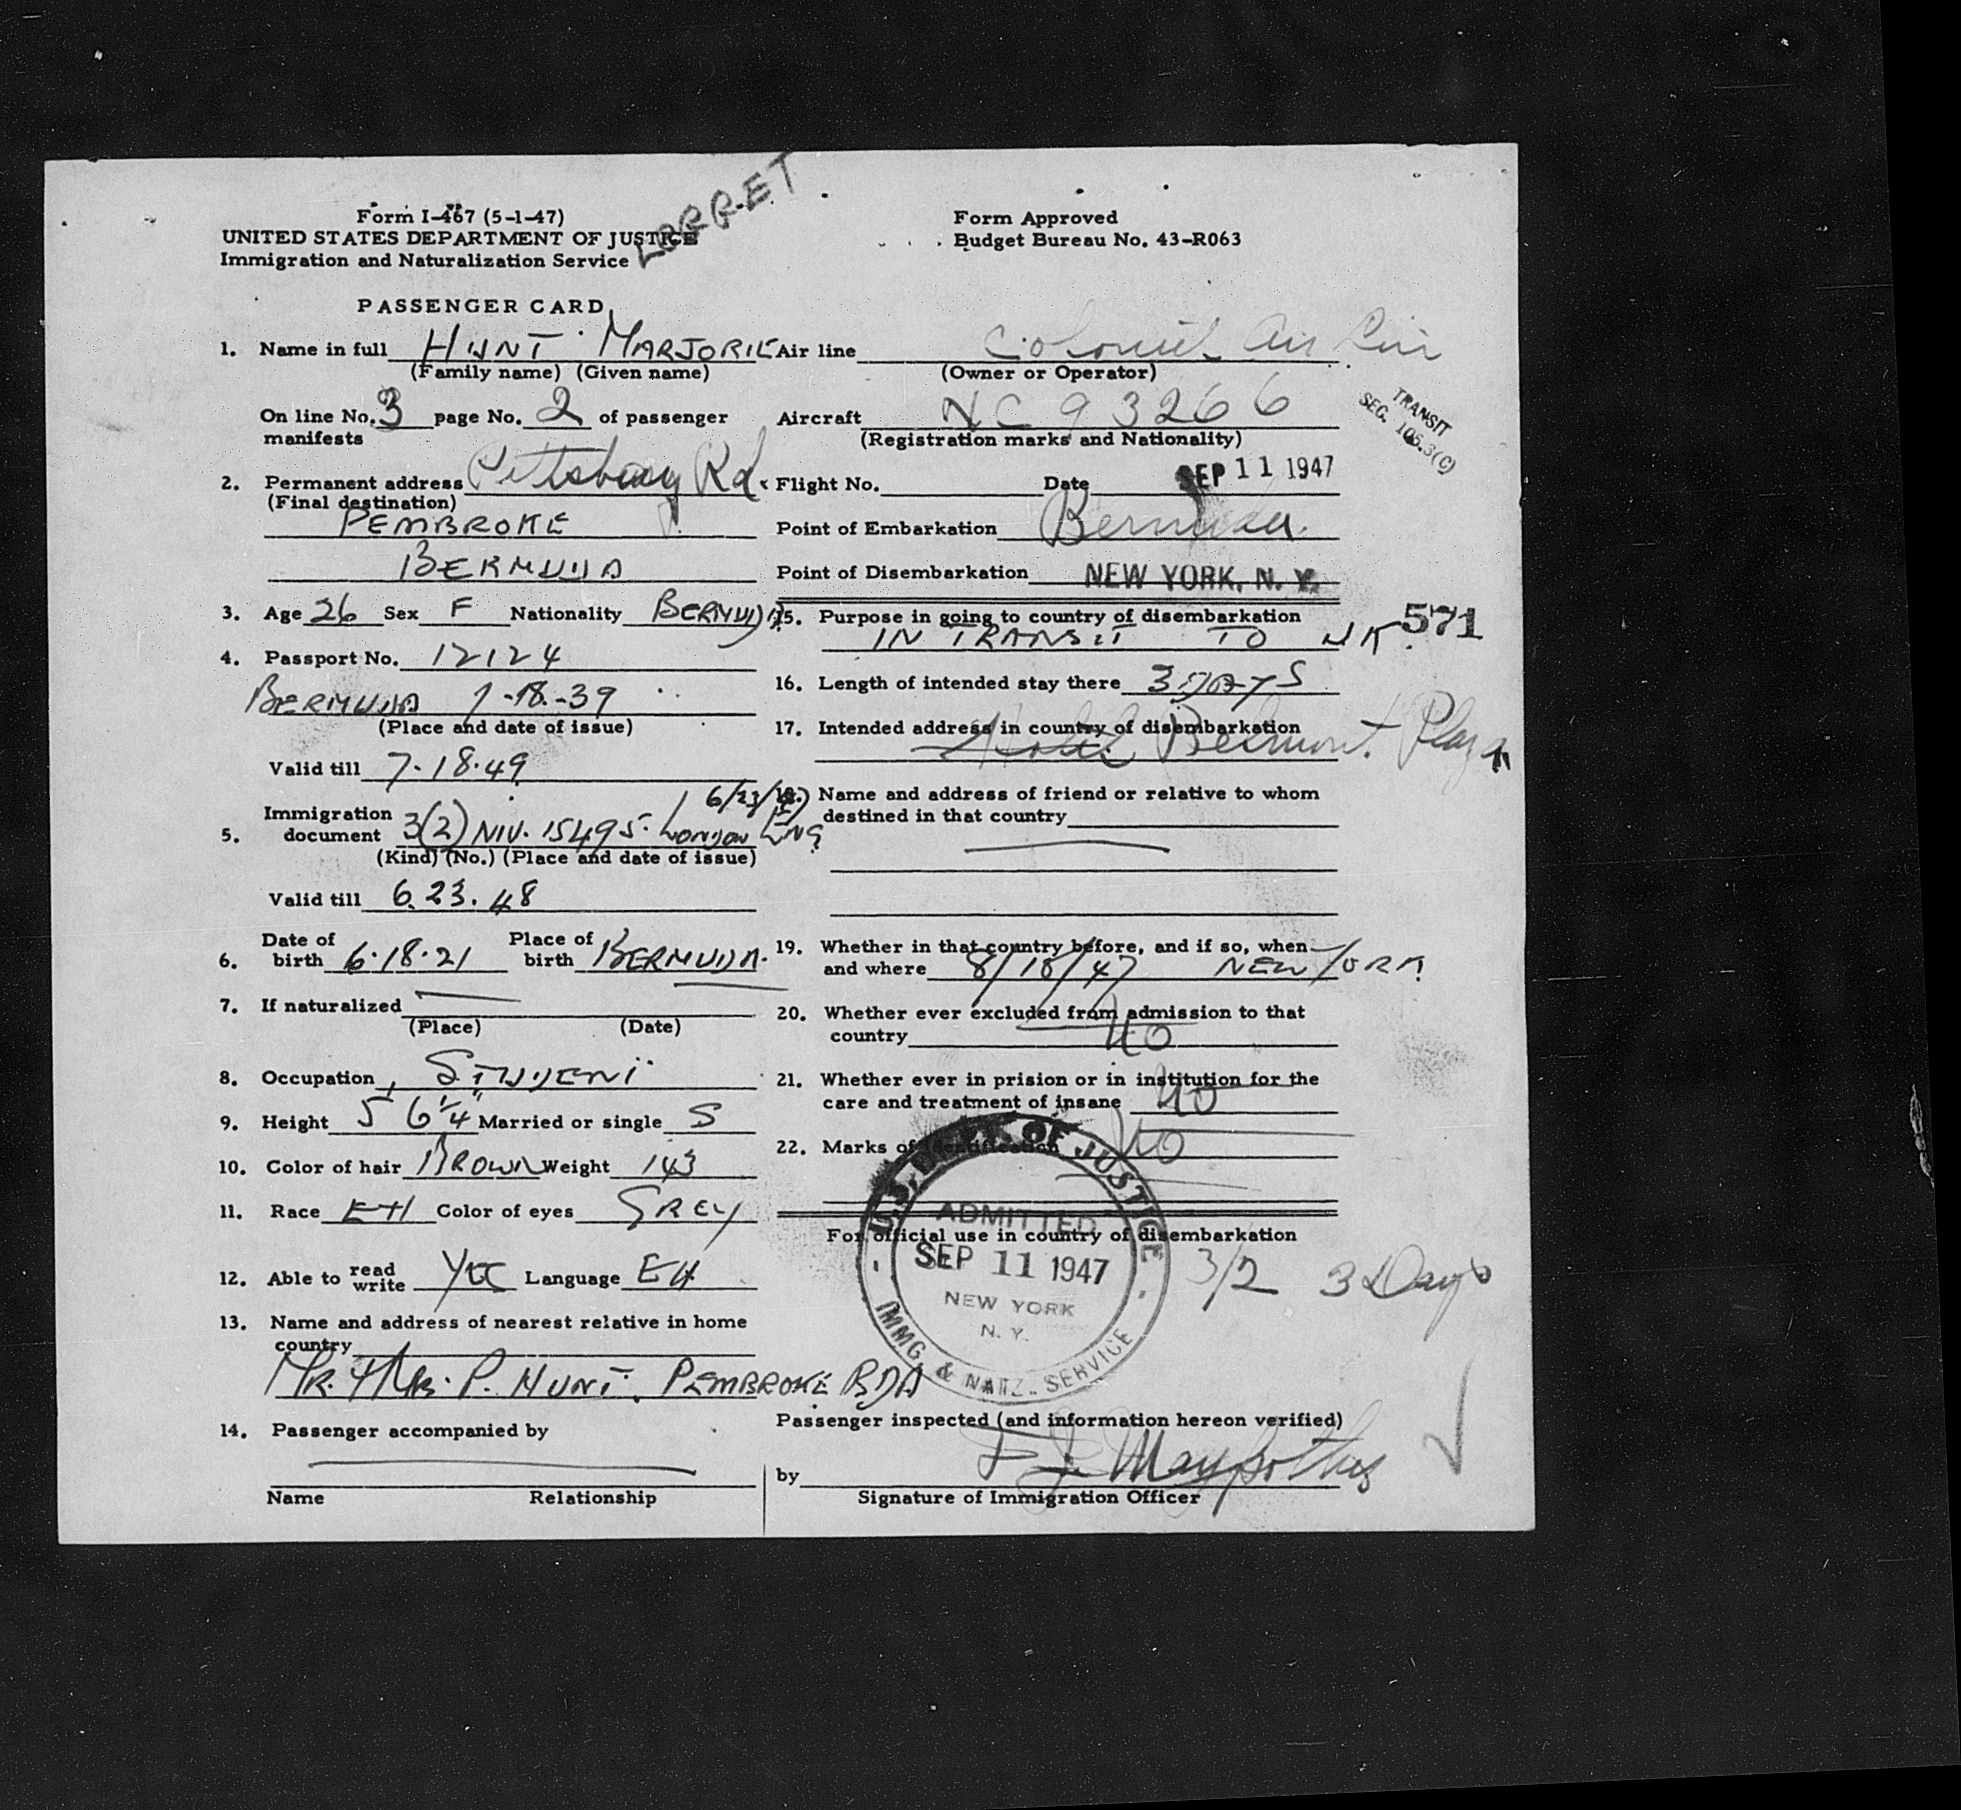 LORRET
Form I-467 (5-1-47)
UNITED STATES DEPARTMENT OF JUSTICE
Immigration and Naturalization Service
Form Approved
Budget Bureau No. 43-R063
PASSENGER CARD
1. Name in full HUNT MARJORIE
(Family name) (Given name)
On line No. 3 page No. 2 of passenger
manifests
2. Permanent address Rd.
(Final destination)
PEMBROKE
BERMUDA
3. Age 26 Sex F Nationality BERMUDA
4. Passport No. 12124
BERMUDA 7-18-39
(Place and date of issue)
Valid till 7.18.49
6/23/47
5. Immigration
document 3(2) NIV. 15495. London Eng
(Kind) (No.) (Place and date of issue)
Valid till 6.23.48
6. Date of birth 6.18.21 Place of birth BERMUDA.
7. If naturalized
(Place) (Date)
8. Occupation STUDENT
9. Height 5 6 1/4" Married or single S
10. Color of hair BROWN Weight 143
11. Race EH Color of eyes GREY
12. Able to read write YES Language EH
13. Name and address of nearest relative in home
country
MR. & MRS. P. HUNT. PEMBROKE BDA
14. Passenger accompanied by
Name Relationship
Air line Colonial Air Lin
(Owner or Operator)
Aircraft NC 93266
(Registration marks and Nationality)
TRANSIT
SEC. 105.3(C)
Flight No. Date SEP 11 1947
Point of Embarkation Bermuda.
Point of Disembarkation NEW YORK, N. Y.
15. Purpose in going to country of disembarkation
IN TRANSIT TO UK.
571
16. Length of intended stay there 3 DAYS
17. Intended address in country of disembarkation
Hotel Belmont Plaza
18. Name and address of friend or relative to whom
destined in that country
19. Whether in that country before, and if so, when
and where 8/18/47 NEW YORK
20. Whether ever excluded from admission to that
country NO
21. Whether ever in prision or in institution for the
care and treatment of insane NO
22. Marks of identification NO
For official use in country of disembarkation
3/2 3 Days
U.S. DEPT. OF JUSTICE
ADMITTED
SEP 11 1947
NEW YORK
N. Y.
IMMG & NATZ. SERVICE
Passenger inspected (and information hereon verified)
by
Signature of Immigration Officer